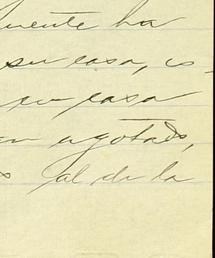 uente ha
su casa, es-
su casa
an agotado,
s al de la